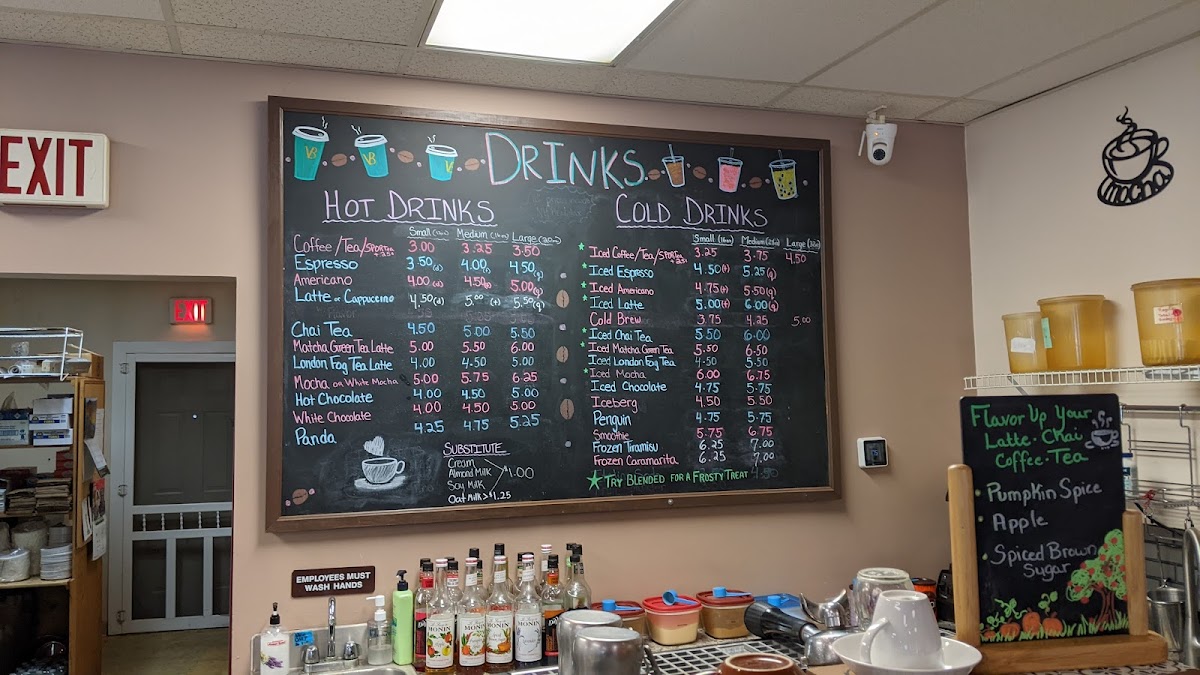 EXIT
EXIT
DRINKS
HOT DRINKS
Small Medium Large
Coffee/Tea/SPORTea 3.00 3.25 3.50
Espresso 3.50(d) 4.00 4.50(q)
Americano 4.00(d) 4.50 5.00(q)
Latte or Cappuccino 4.50(d) 5.00 (t) 5.50(q)
Chai Tea 4.50 5.00 5.50
Matcha Green Tea Latte 5.00 5.50 6.00
London Fog Tea Latte 4.00 4.50 5.00
Mocha or White Mocha 5.00 5.75 6.25
Hot Chocolate 4.00 4.50 5.00
White Chocolate 4.00 4.50 5.00
Panda 4.25 4.75 5.25
SUBSTITUTE
Cream
Almond Milk
Soy Milk
$1.00
Oat Milk > $1.25
COLD DRINKS
Small Medium Large
Iced Coffee/Tea/SPORTea 3.25 3.75 4.50
Iced Espresso 4.50(t) 5.25(q)
Iced Americano 4.75(t) 5.50(q)
Iced Latte 5.00(t) 6.00(q)
Cold Brew 3.75 4.25 5.00
Iced Chai Tea 5.50 6.00
Iced Matcha Green Tea 5.50 6.50
Iced London Fog Tea 4.50 5.50
Iced Mocha 6.00 6.75
Iced Chocolate 4.75 5.75
Iceberg 4.50 5.50
Penguin 4.75 5.75
Smoothie 5.75 6.75
Frozen Tiramisu 6.25 7.00
Frozen Caramarita 6.25 7.00
TRY BLENDED FOR A FROSTY TREAT
mocha
Flavor Up Your
Latte·Chai
Coffee·Tea
· Pumpkin Spice
· Apple
· Spiced Brown
Sugar
EMPLOYEES MUST
WASH HANDS
MONIN
MONIN
MONIN